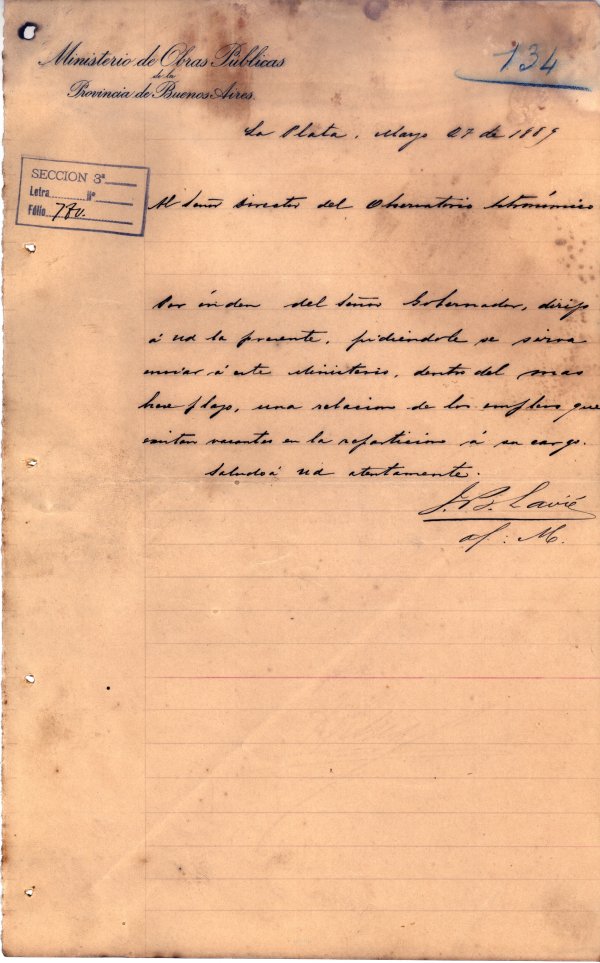 Ministerio de Obras Públicas
de la
Provincia de Buenos Aires.
134
La Plata, Mayo 27 de 1889
SECCION 3ª
Letra Nº
Fólio 78v.
Al Señor Director del Observatorio Astronómico
Por órden del Señor Gobernador, dirijo
á Ud la presente, pidiéndole se sirva
enviar á este Ministerio, dentro del mas
breve plazo, una relacion de los empleos que
existen vacantes en la reparticion á su cargo.
Saludo á Ud atentamente.
J. B. Lavié
of: M.